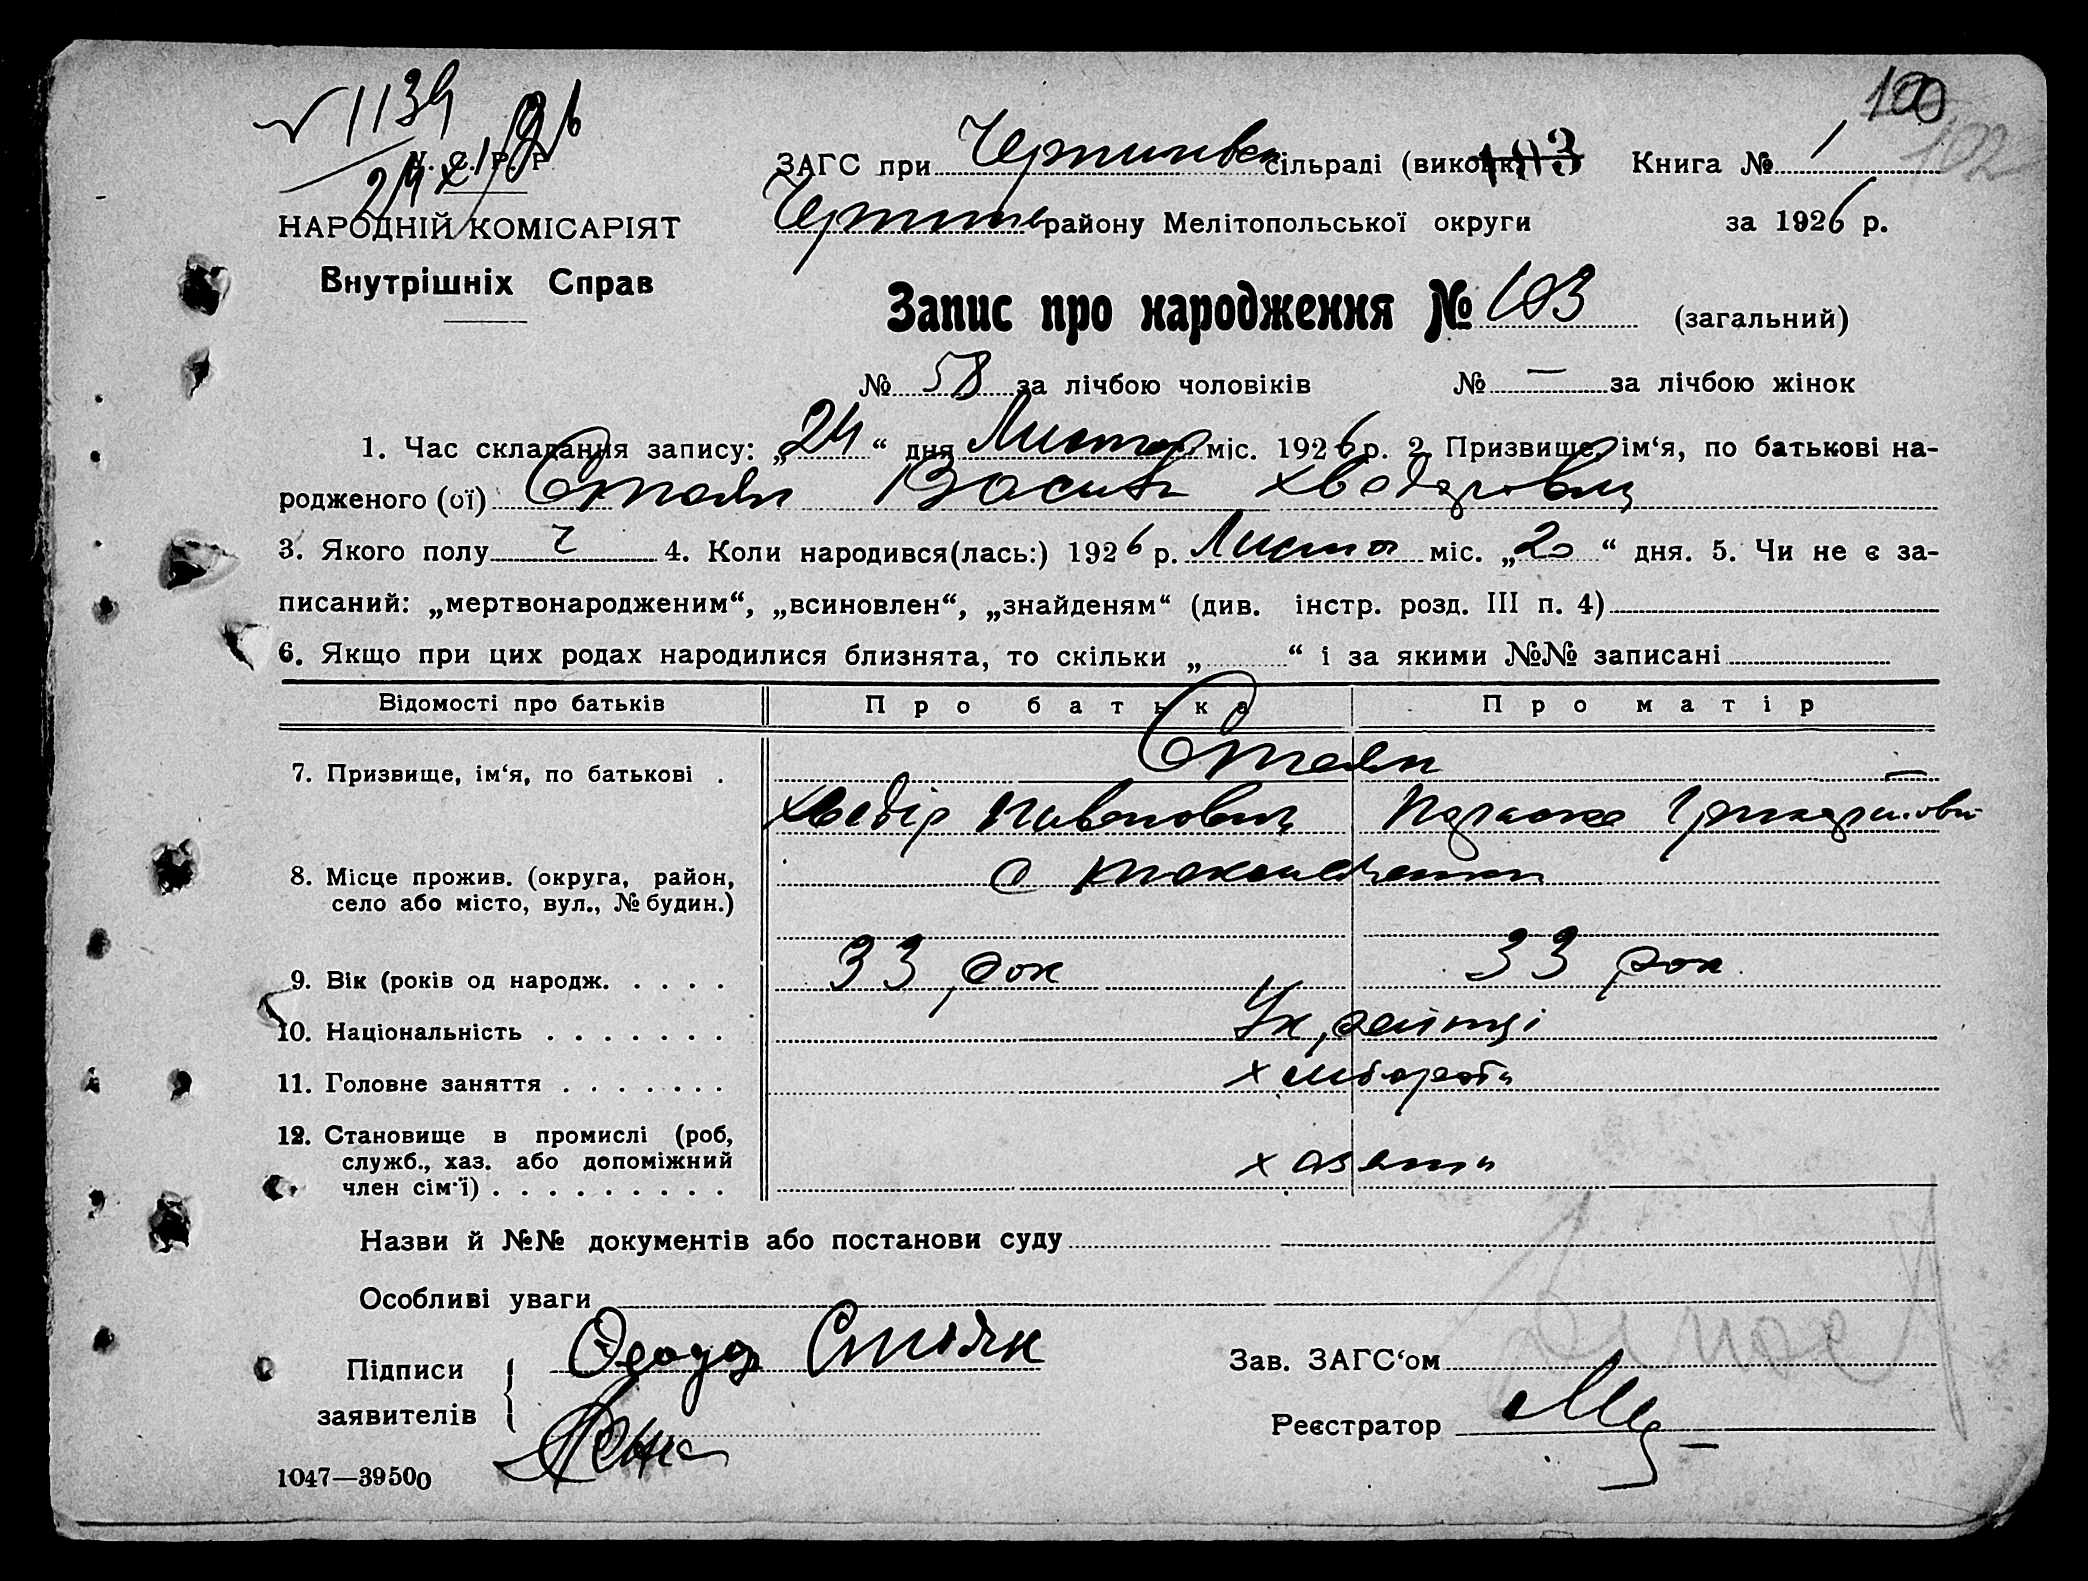 √ 1139
24/XI 26
У. С. Р. Р.
НАРОДНІЙ КОМІСАРІЯТ
Внутрішніх Справ
100
102
ЗАГС при сільраді (виконк) 103 Книга № 1
району Мелітопольської округи за 1926 р.
Запис про народження № 103 (загальний)
№ 58 за лічбою чоловіків № — за лічбою жінок
1. Час складання запису: „24“ дня Листоп міс. 1926 р. 2. Призвище, ім‘я, по батькові на-
родженого (ої) Стоян Василь Хведорович
3. Якого полу ч 4. Коли народився(лась:) 1926 р. Листоп міс. „20“ дня. 5. Чи не є за-
писаний: „мертвонародженим“, „всиновлен“, „знайденям“ (див. інстр. розд. III п. 4)
6. Якщо при цих родах народилися близнята, то скільки „ “ і за якими №№ записані
Відомості про батьків Про батька Про матір
7. Призвище, ім‘я, по батькові . Стоян —
Хведір Параска
8. Місце прожив. (округа, район,
село або місто, вул., № будин.)
9. Вік (років од народж. . . . . 33 рок 33 рок
10. Національність . . . . . . . Українці
11. Головне заняття . . . . . . . хлібороби
12. Становище в промислі (роб,
служб., хаз. або допоміжний
член сім‘ї) . . . . . . . . . хазяини
Назви й №№ документів або постанови суду
Особливі уваги
Підписи Стоян
заявителів
Зав. ЗАГС‘ом
Реєстратор
1047—39500